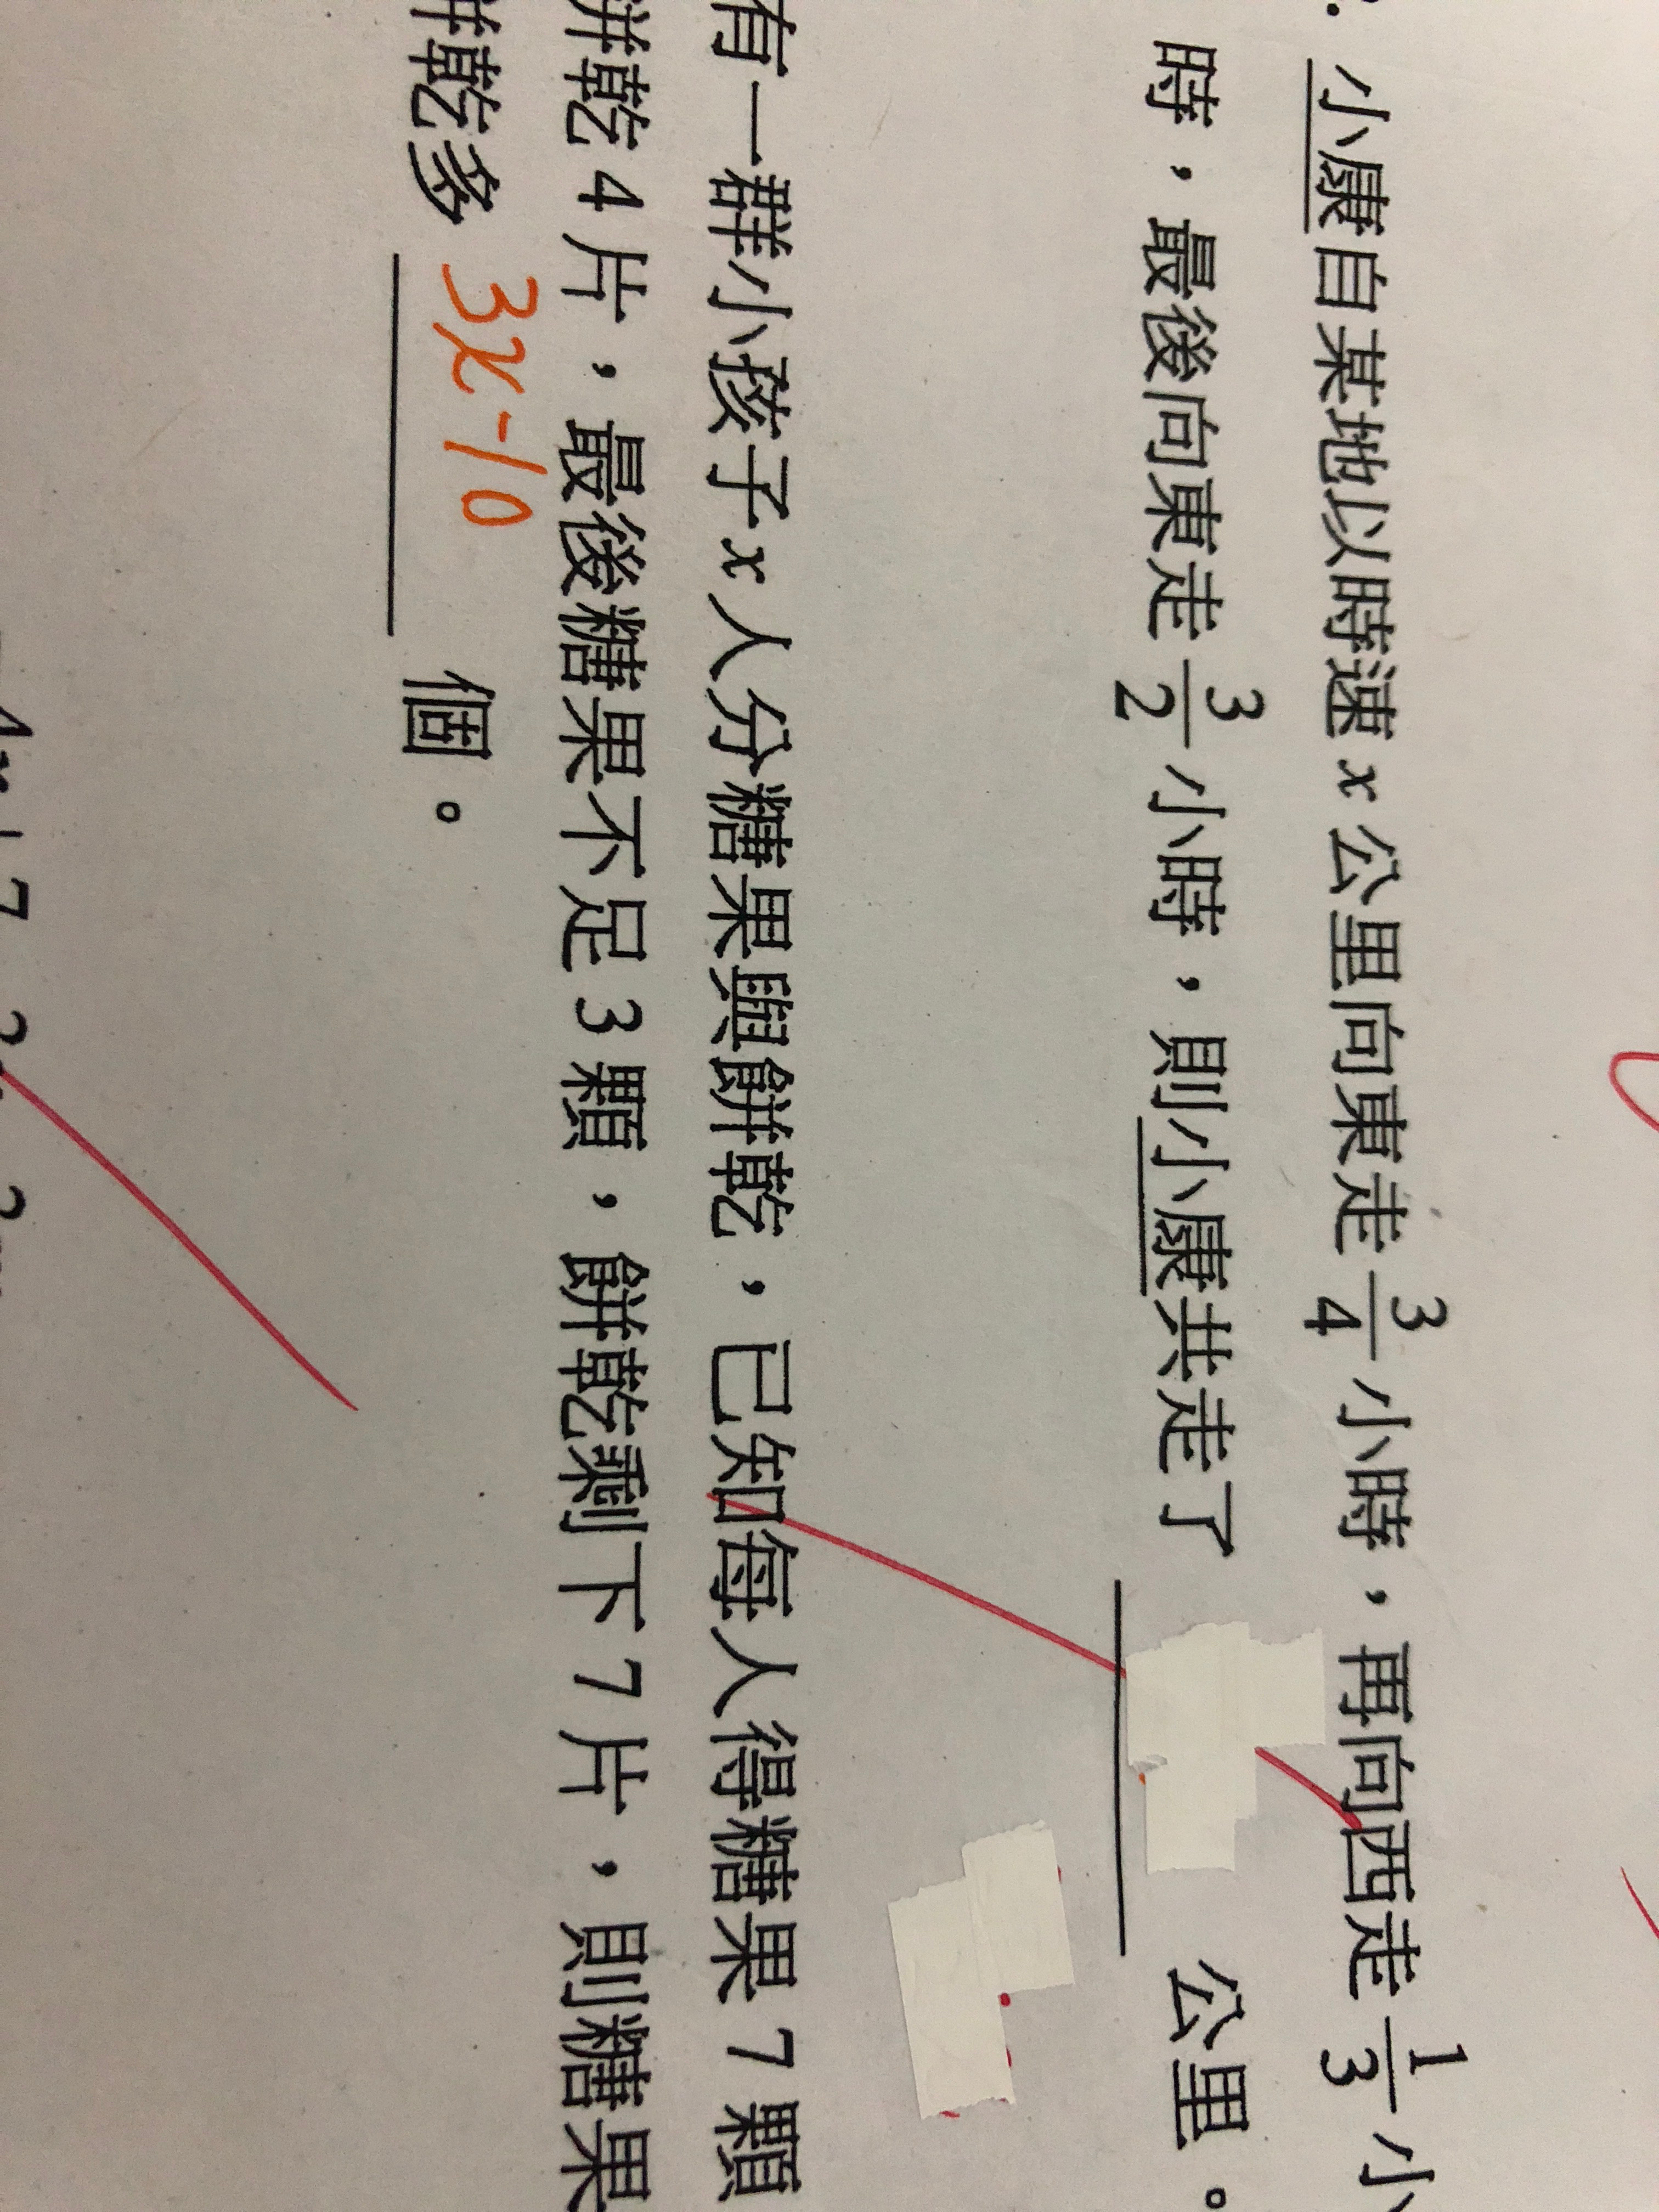 小康自某地以時速 x 公里向東走 3/4 小時，再向西走 1/3 小
時，最後向東走 3/2 小時，則小康共走了 公里。
有一群小孩子 x 人分糖果與餅乾，已知每人得糖果 7 顆
餅乾 4 片，最後糖果不足 3 顆，餅乾剩下 7 片，則糖果
餅乾多 3x-10 個。